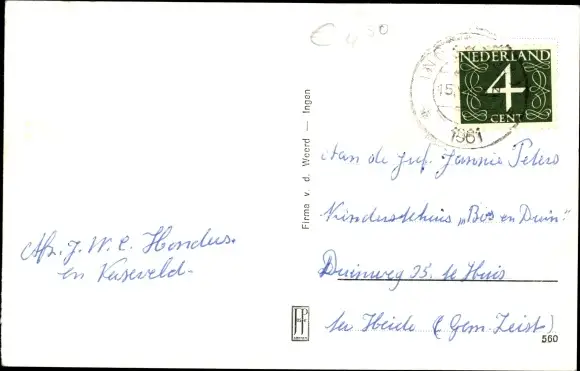 € 4 50
NEDERLAND
4
CENT
15.
1961
Firma v. d. Weerd — Ingen
Aan de Jef. Jannie Peters
Kinderziekhuis „Bos en Duin”
Duinweg 25. te Huis
ter Heide (Gem. Zeist)
Afz. J. W. C. Honders.
en
560